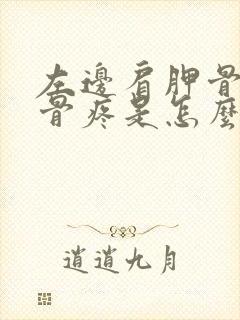 左邊肩胛骨
骨疼是怎麼
逍遙九月